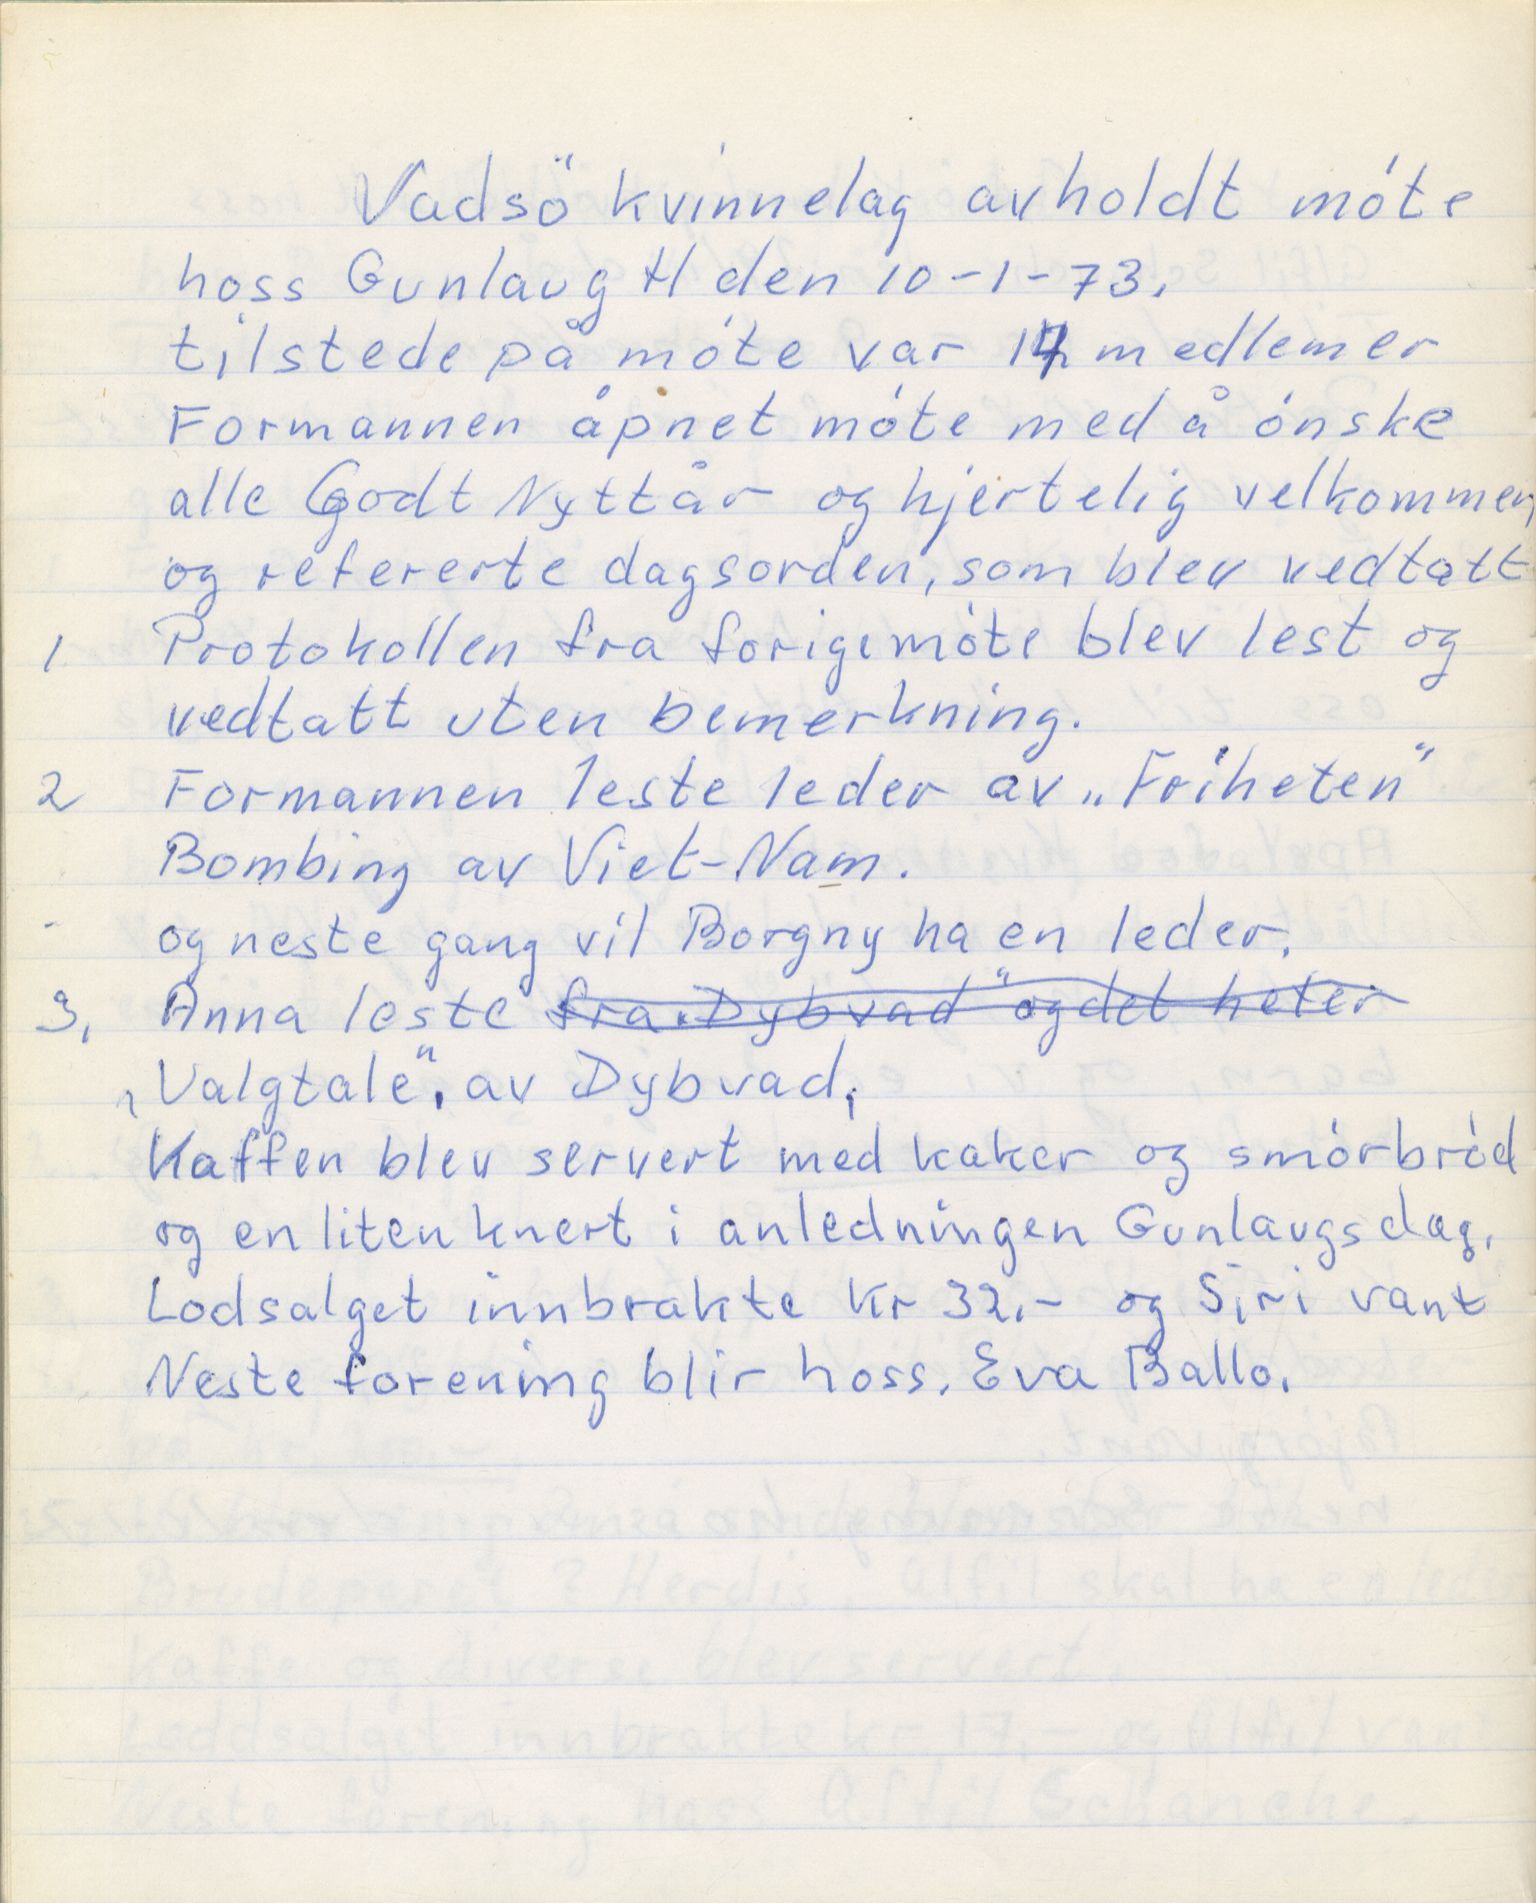 Vadsö kvinnelag avholdt móte
hoss Gunlaug H den 10-1-73.
tilstede på móte var 14 medlemer
Formannen åpnet móte med å ónske
alle Godt Nyttår og hjertelig velkommen
og refererte dagsorden, som blev vedtatt
1 Protokollen fra forige móte blev lest og
vedtatt uten bemerkning.
2 Formannen leste leder av „Friheten"
Bombing av Viet-Nam.
og neste gang vil Borgny ha en leder.
3, Anna leste fra „Dybvad" og det heter
„Valgtale". av Dybvad,
Kaffen blev servert med kaker og smórbród
og en liten knert i anledningen Gunlaugs dag.
Lodsalget innbrakte Kr 32,- og Siri vant
Neste forening blir hoss. Eva Ballo.